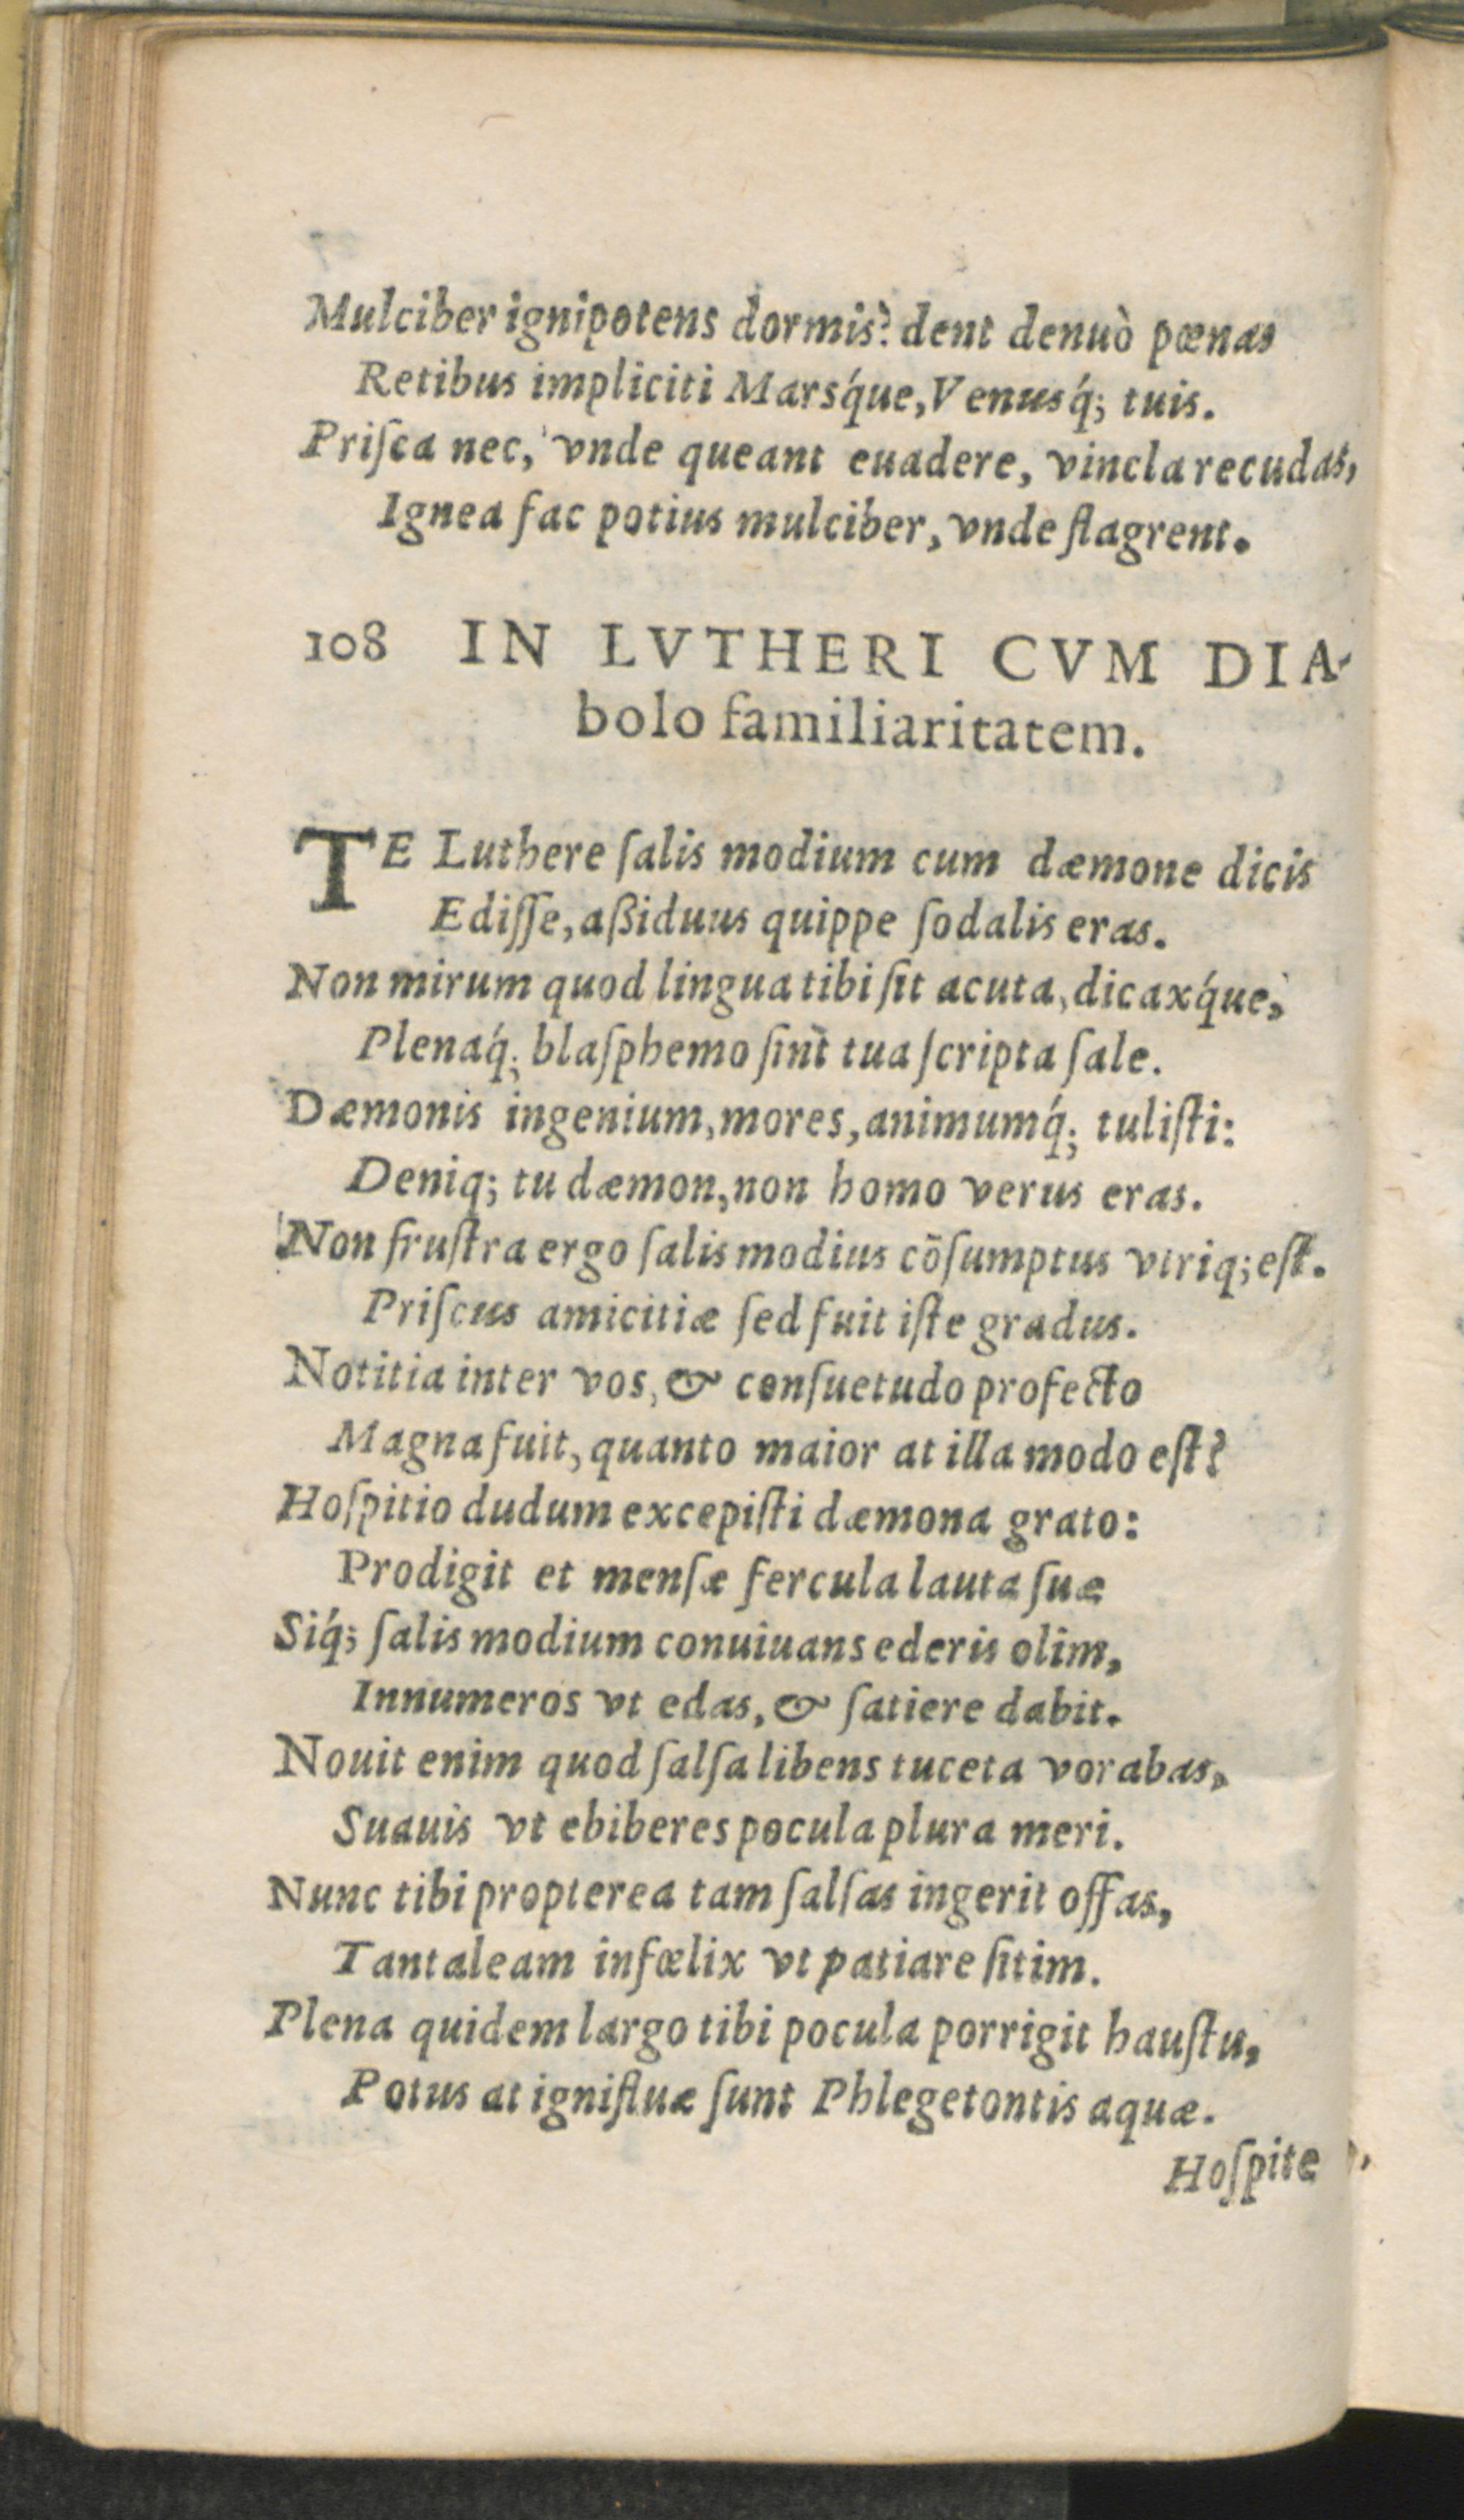 Mulciber ignipotens dormis? dent denuò pœnas
Retibus impliciti Marsq́ue, Venusq́; tuis.
Priſca nec, vnde queant euadere, vincla recudas,
Ignea fac potius mulciber, vnde flagrent.
108 IN LVTHERI CVM DIA-
bolo familiaritatem.
TE Luthere ſalis modium cum dæmone dicis
Ediſſe, aßiduus quippe ſodalis eras.
Non mirum quod lingua tibi ſit acuta, dicaxq́ue,
Plenaq́; blaſphemo ſint tua ſcripta ſale.
Dæmonis ingenium, mores, animumq́; tuliſti:
Deniq; tu dæmon, non homo verus eras.
Non fruſtra ergo ſalis modius cõſumptus vtriq; eſt.
Priſcus amicitiæ ſed fuit iſte gradus.
Notitia inter vos, & conſuetudo profecto
Magna fuit, quanto maior at illa modo eſt?
Hoſpitio dudum excepiſti dæmona grato:
Prodigit et menſæ fercula lauta ſuæ
Siq́; ſalis modium conuiuans ederis olim,
Innumeros vt edas, & ſatiere dabit.
Nouit enim quod ſalſa libens tuceta vorabas,
Suauis vt ebiberes pocula plura meri.
Nunc tibi propterea tam ſalſas ingerit offas,
Tantaleam infœlix vt patiare ſitim.
Plena quidem largo tibi pocula porrigit hauſtu,
Potus at ignifluæ ſunt Phlegetontis aquæ.
Hoſpite